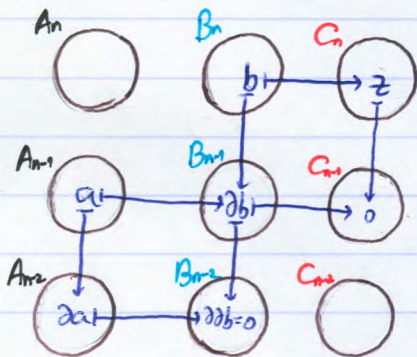 An Bn Cn
b z
An-1 Bn-1 Cn-1
a ∂b 0
An-2 Bn-2 Cn-2
∂a ∂∂b=0